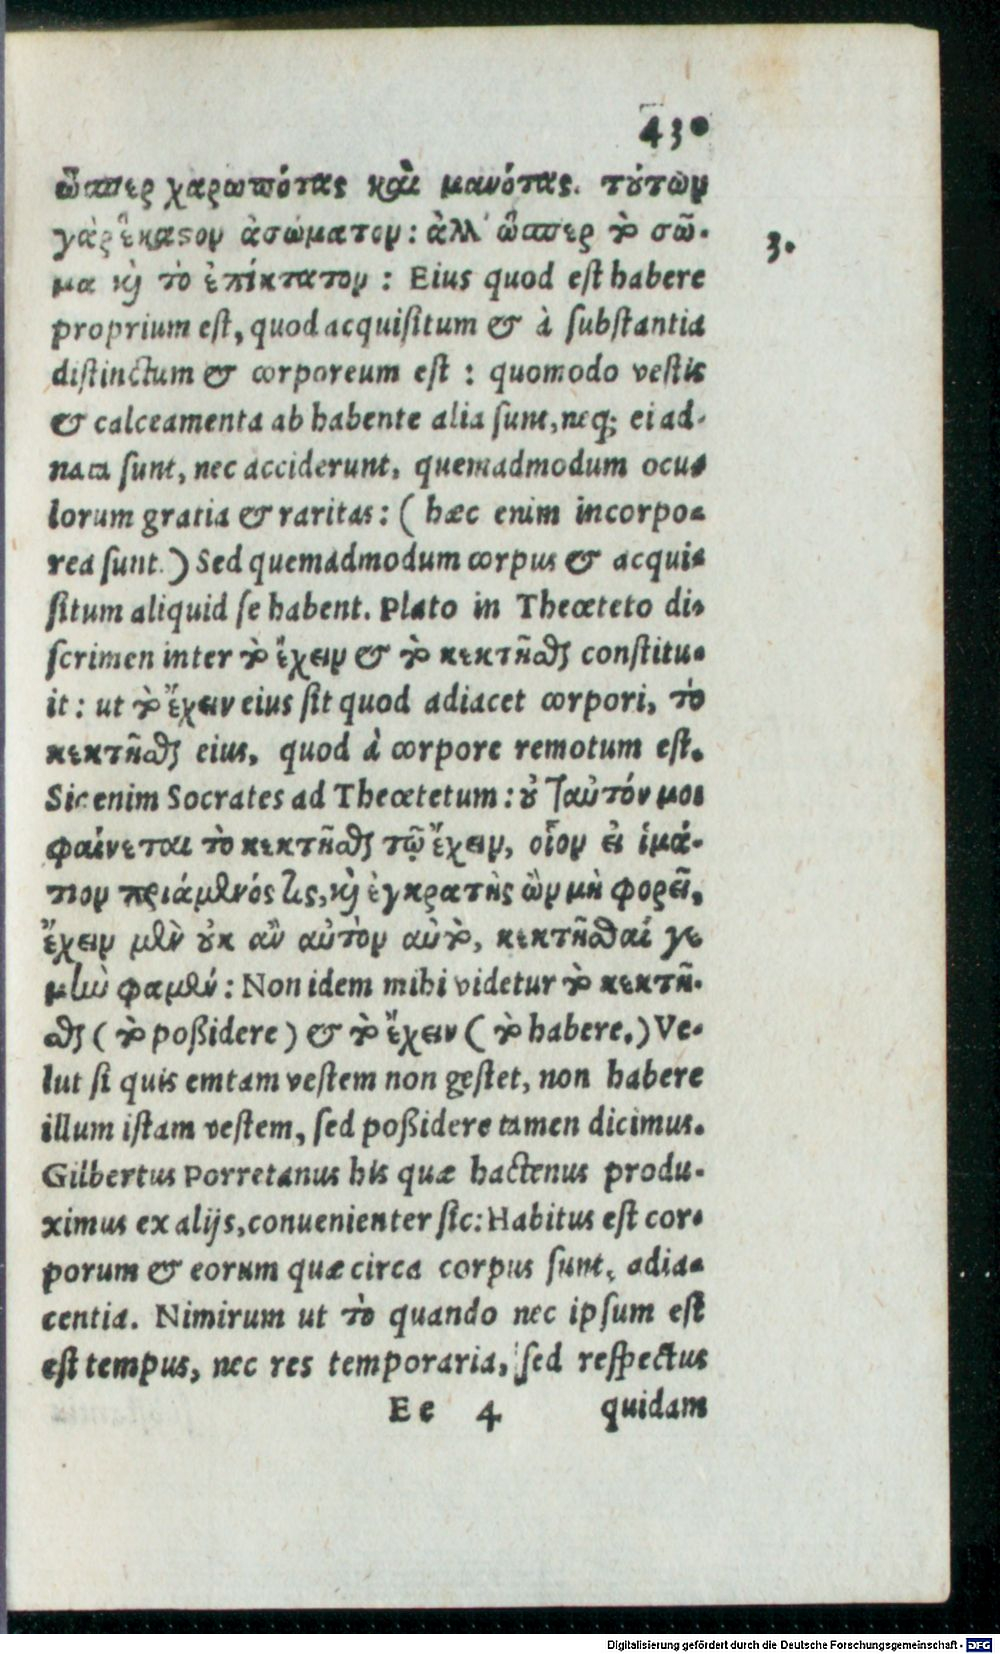 430
ὥσπερ χαροπότης καὶ μανότης. τούτων
γὰρ ἕκαστον ἀσώματον: ἀλλ' ὥσπερ τὸ σῶ-
3.
μα κὶ τὸ ἐπίκτατον : Eius quod est habere
proprium est, quod acquisitum & à substantia
distinctum & corporeum est : quomodo vestis
& calceamenta ab habente alia sunt, neq; ei ad-
nata sunt, nec acciderunt, quemadmodum ocu-
lorum gratia & raritas: ( hæc enim incorpo-
rea sunt.) Sed quemadmodum corpus & acqui-
situm aliquid se habent. Plato in Theæteto di-
scrimen inter τὸ ἔχειν & τὸ κεκτῆσθαι constitu-
it: ut τὸ ἔχειν eius sit quod adiacet corpori, τὸ
κεκτῆσθαι eius, quod à corpore remotum est.
Sic enim Socrates ad Theætetum: οὐ ταὐτόν μοι
φαίνεται τὸ κεκτῆσθαι τῷ ἔχειν, οἷον εἰ ἱμά-
τιον πριάμενός τις, κὶ ἐγκρατὴς ὢν μὴ φορεῖ,
ἔχειν μὲν οὐκ ἂν αὐτὸν αὐτὸ, κεκτῆσθαί γε
μὴν φαμέν: Non idem mihi videtur τὸ κεκτῆ-
σθαι ( τὸ poßidere ) & τὸ ἔχειν ( τὸ habere.) Ve-
lut si quis emtam vestem non gestet, non habere
illum istam vestem, sed poßidere tamen dicimus.
Gilbertus Porretanus his quæ hactenus produ-
ximus ex alijs, conuenienter sic: Habitus est cor-
porum & eorum quæ circa corpus sunt, adia-
centia. Nimirum ut τὸ quando nec ipsum est
est tempus, nec res temporaria, sed respectus
Ee 4 quidam
Digitalisierung gefördert durch die Deutsche Forschungsgemeinschaft - DFG